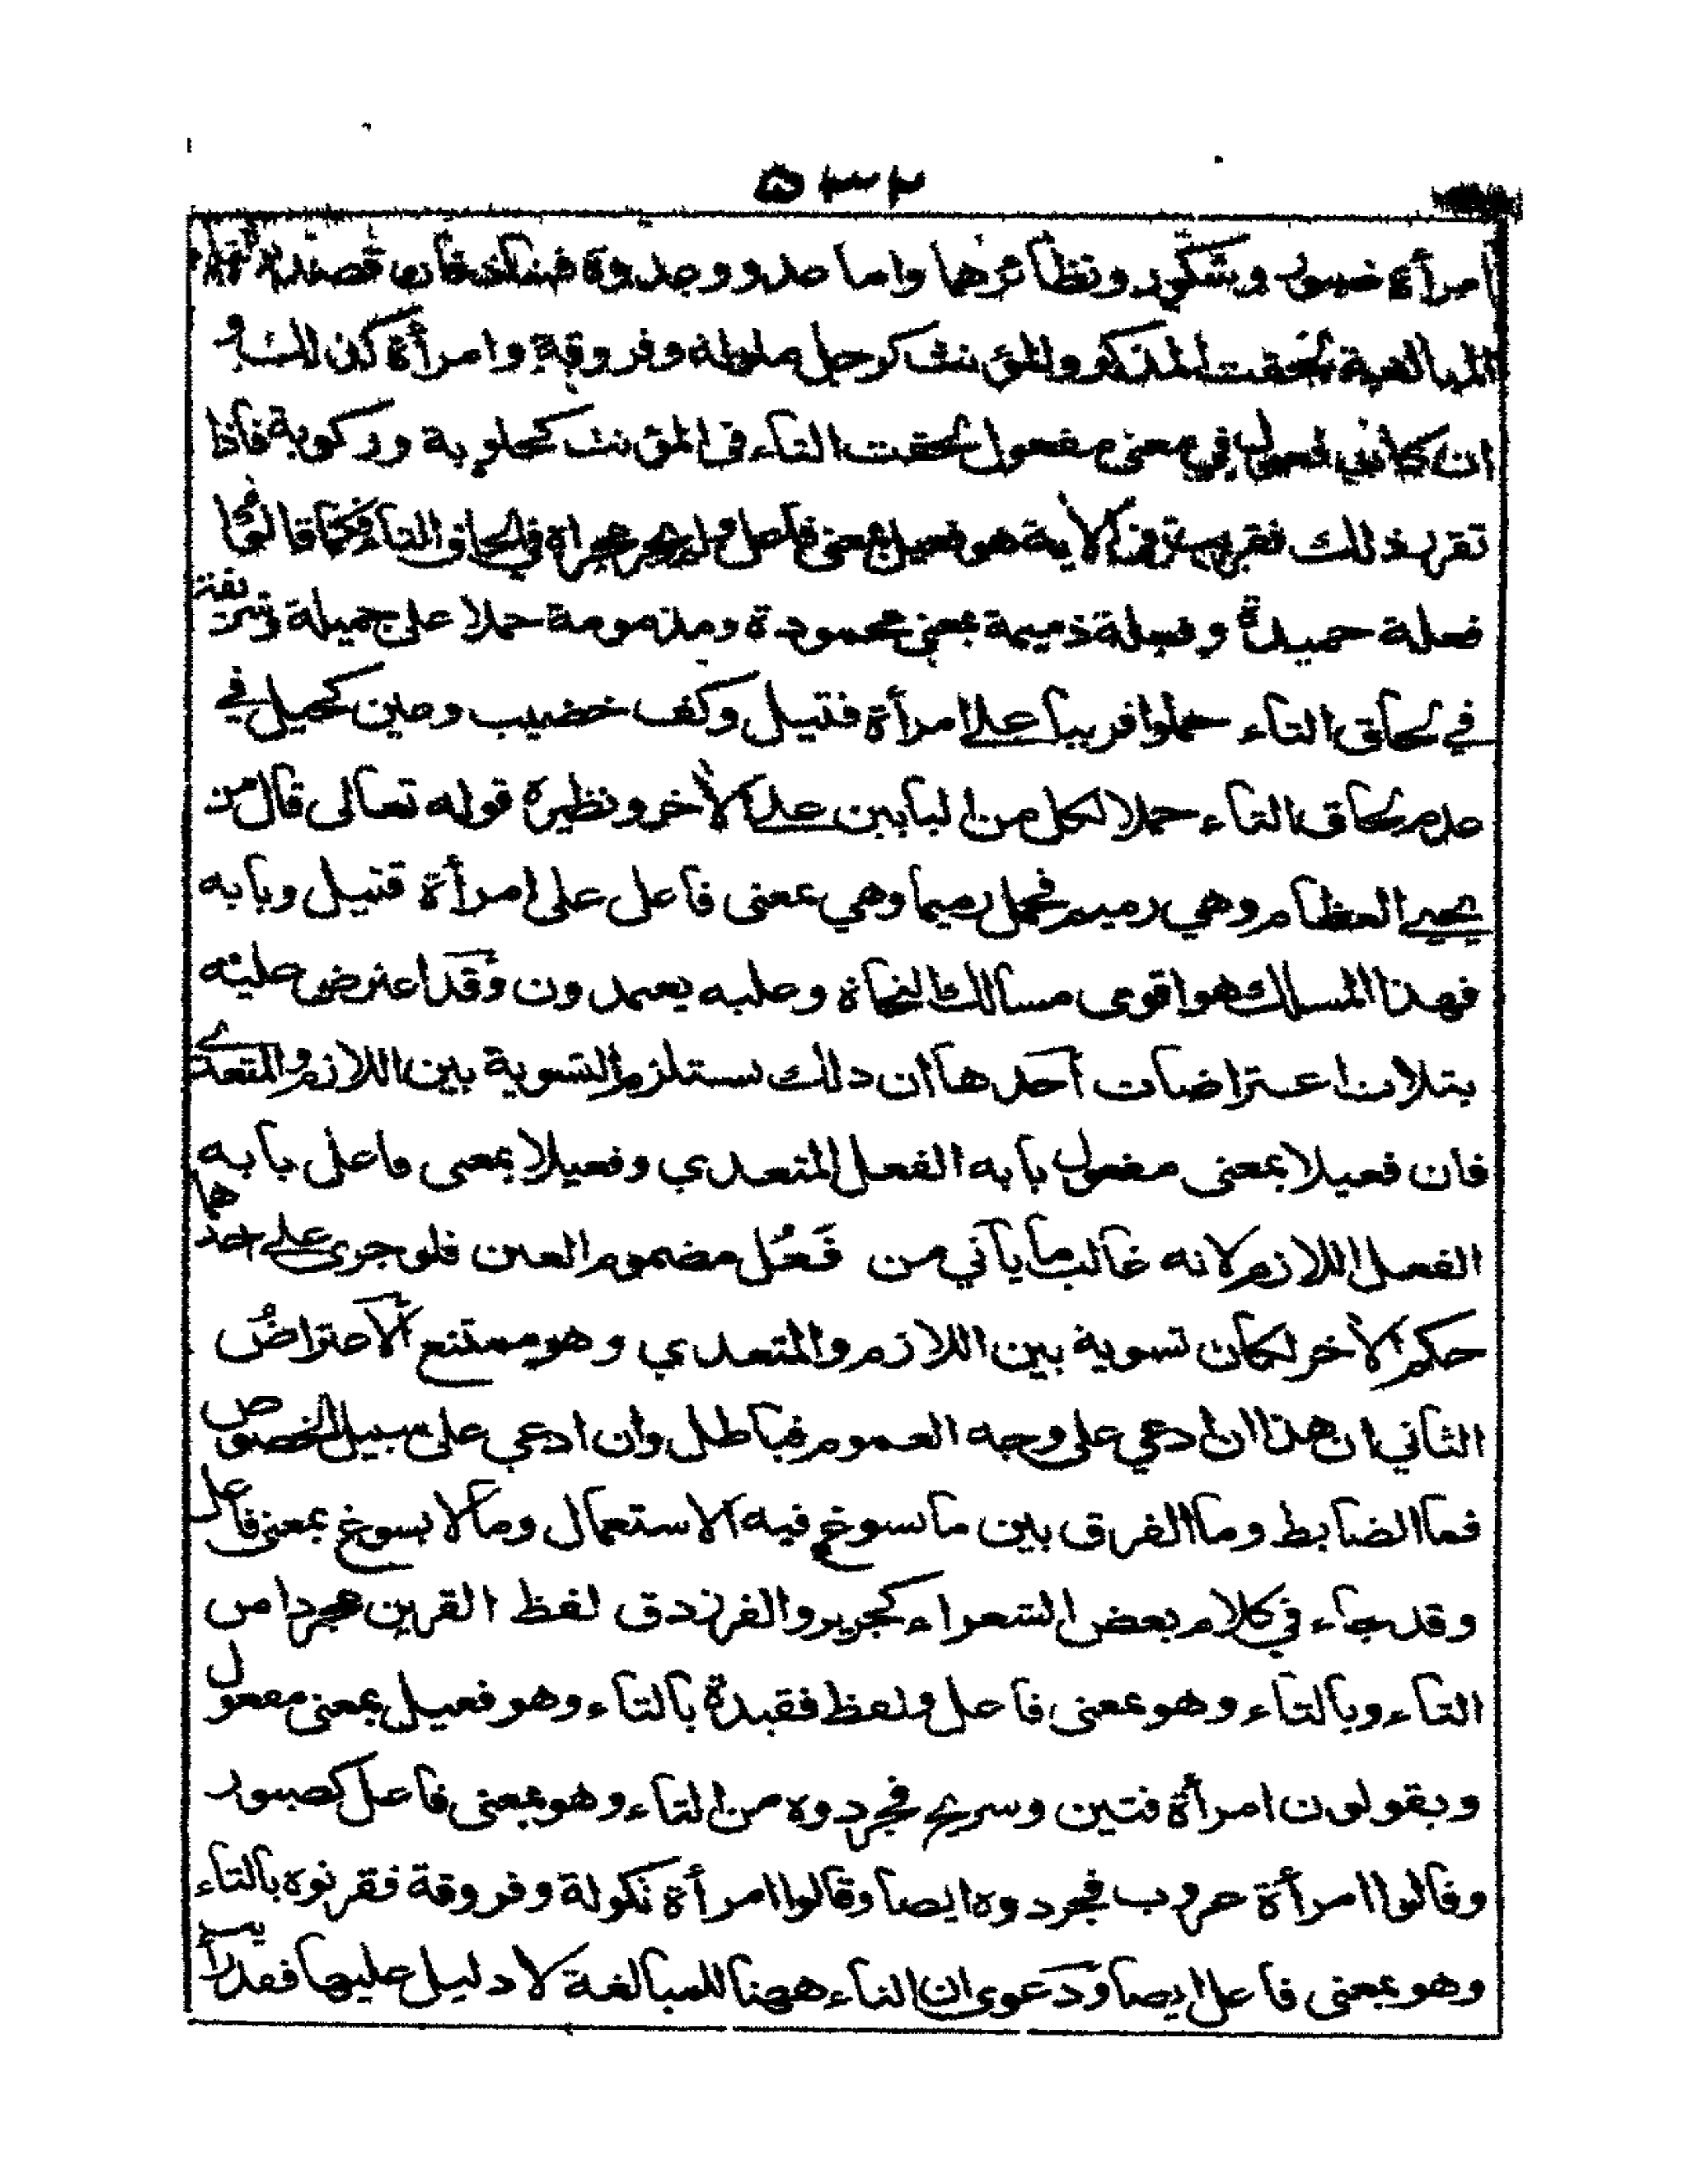 ٥٣٢
امرأة صبور وشكور ونظائرهما واما عدو وعدوة فشاذ فان قصدت به
المبالغة لحقت المذكر والمؤنث كرجل ملولة وفروقة وامرأة كذلك و
ان كان فعول في معنى مفعول لحقت التاء في المؤنث كحلوبة وركوبة فاذا
تقرر ذلك فقريب في الاية هو فعيل بمعنى فاعل وليس مجراه في الحاق التاء فكما قالوا
فعلة حميدة وفعلة ذميمة بمعنى محمودة ومذمومة حملا على جميلة وشريفة
في لحاق التاء حملوا قريبا على امرأة قتيل وكف خضيب وعين كحيل في
عدم لحاق التاء حملا لكل من البابين على الاخر ونظيره قوله تعالى قال من
يحيى العظام وهي رميم فحمل رميما وهي بمعنى فاعل على امرأة قتيل وبابه
فهذا المسلك هو اقوى مسالك النحاة وعليه يعتمدون وقد اعترض عليه
بثلاث اعتراضات آحدها ان ذلك يستلزم التسوية بين اللازم والمتعدي
فان فعيلا بمعنى مفعول بابه الفعل المتعدي وفعيلا بمعنى فاعل بابه
الفعل اللازم لانه غالب ما يأتي من فَعُل مضموم العين فلو جرى على احدهما
حكم الاخر لكان تسوية بين اللازم والمتعدي وهو ممتنع آلاعتراض
الثاني ان هذا ان ادعي على وجه العموم فباطل وان ادعي على سبيل الخصوص
فما الضابط وما الفرق بين ما يسوغ فيه الاستعمال وما لا يسوغ بمعنى فاعل
وقد جاء في كلام بعض الشعراء كجرير والفرزدق لفظ القرين مجردا من
التاء وبالتاء وهو بمعنى فاعل ولفظ فقيدة بالتاء وهو فعيل بمعنى مفعول
ويقولون امرأة فتين وسريح فجردوه من التاء وهو بمعنى فاعل كصبور
وقالوا امرأة عروب فجردوه ايضا وقالوا امرأة نكولة وفروقة فقرنوه بالتاء
وهو بمعنى فاعل ايضا ودعوى ان التاء ههنا للمبالغة لا دليل عليها فقد رأيت